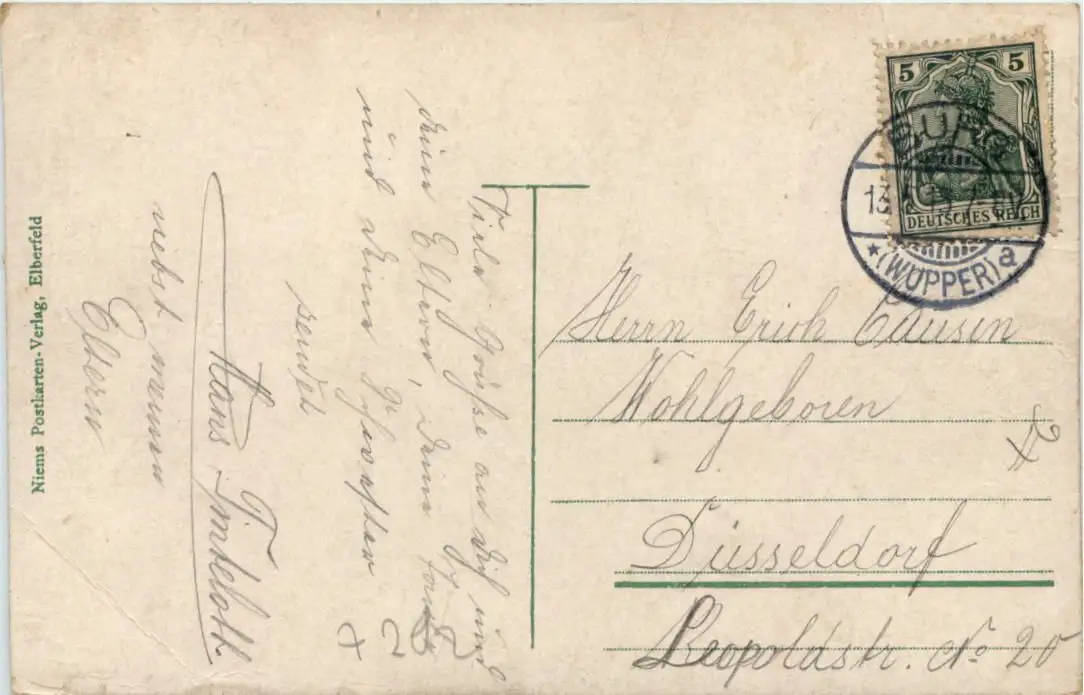 Niems Postkarten-Verlag, Elberfeld
Viele Grüße an Dich und
Deine Eltern, Deine
und Deine Geschwister
sendet
Hans
nebst meinen
Eltern
5 5
DEUTSCHES REICH
BURG
13
* (WUPPER) a
Herrn Erich Clausen
Wohlgeboren
Düsseldorf
Leopoldstr. No 20